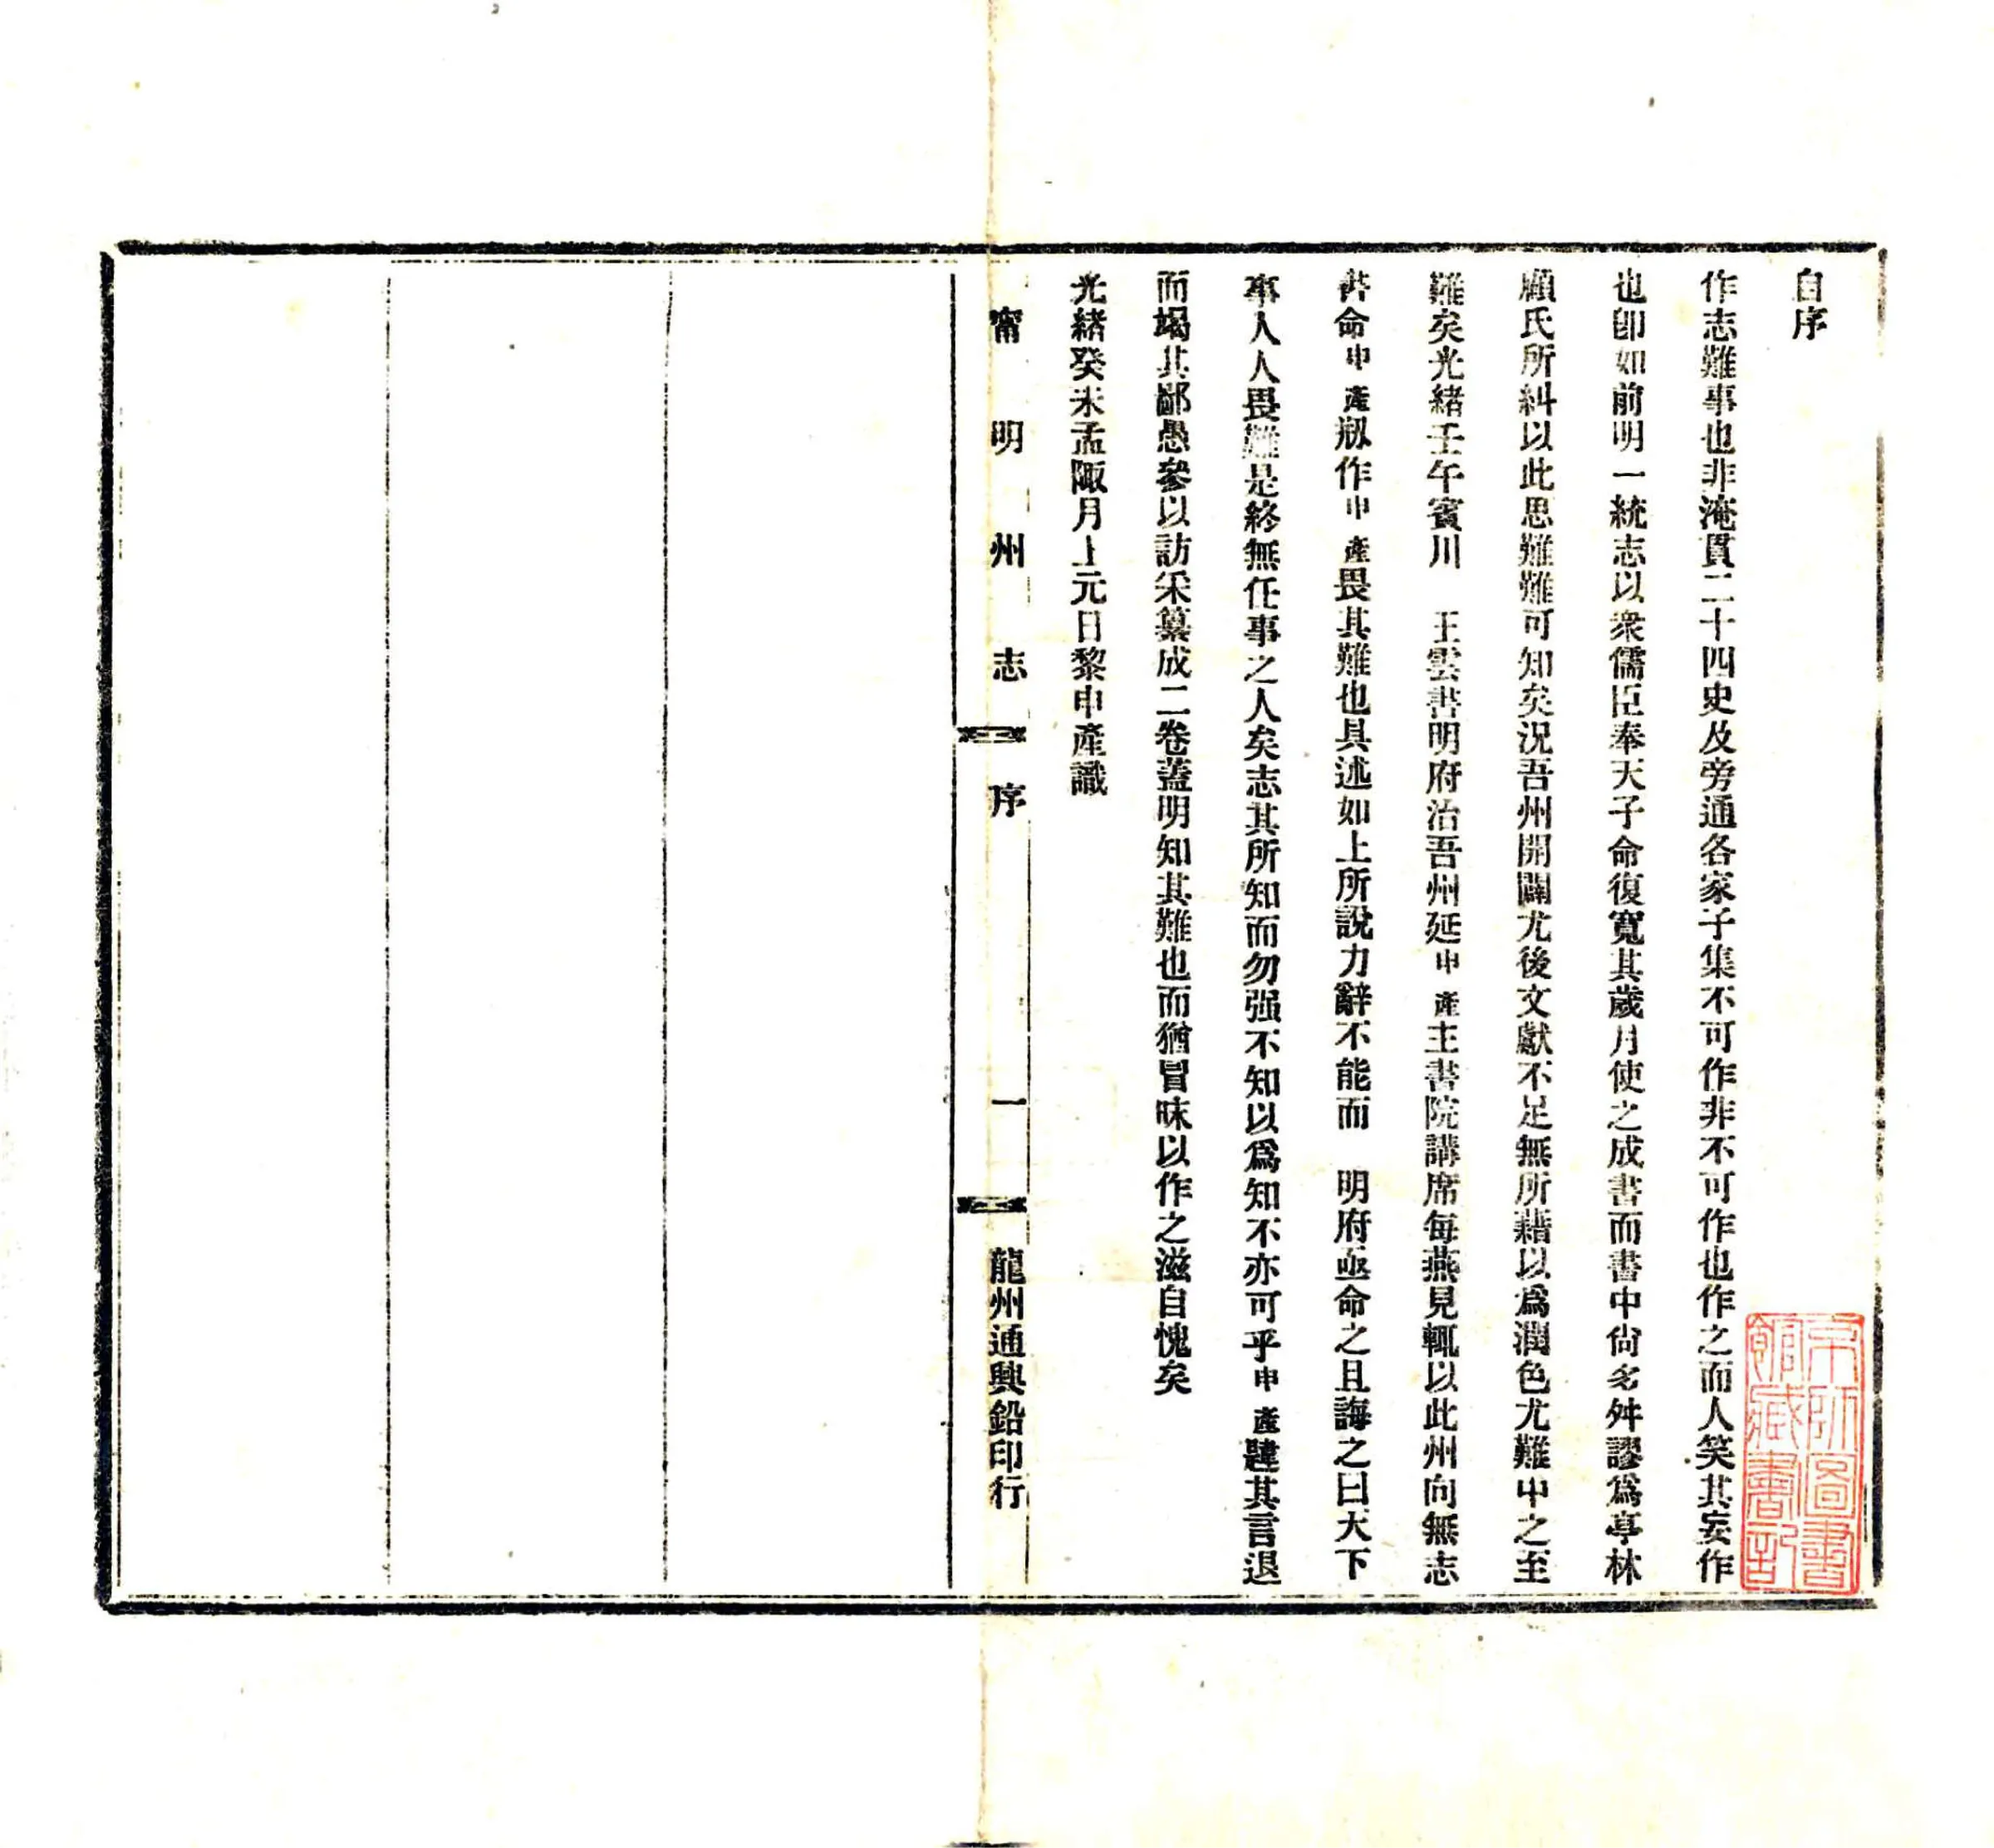 自序
作志難事也非淹貫二十四史及旁通各家子集不可作非不可作也作之而人笑其妄作
也卽如前明一統志以衆儒臣奉天子命復寬其歲月使之成書而書中尙多舛謬爲亭林
顧氏所糾以此思難難可知矣況吾州開闢尤後文獻不足無所藉以爲潤色尤難中之至
難矣光緒壬午賓川　王雲書明府治吾州延申產主書院講席每燕見輒以此州向無志
書命申產剏作申產畏其難也具述如上所說力辭不能而　明府亟命之且誨之曰天下
事人人畏難是終無任事之人矣志其所知而勿强不知以爲知不亦可乎申產韙其言退
而竭其鄙愚參以訪采纂成二卷蓋明知其難也而猶冒昧以作之滋自愧矣
光緒癸未孟陬月上元日黎申產識
甯明州志　序　一　龍州通興鉛印行
京師圖書
館藏書記